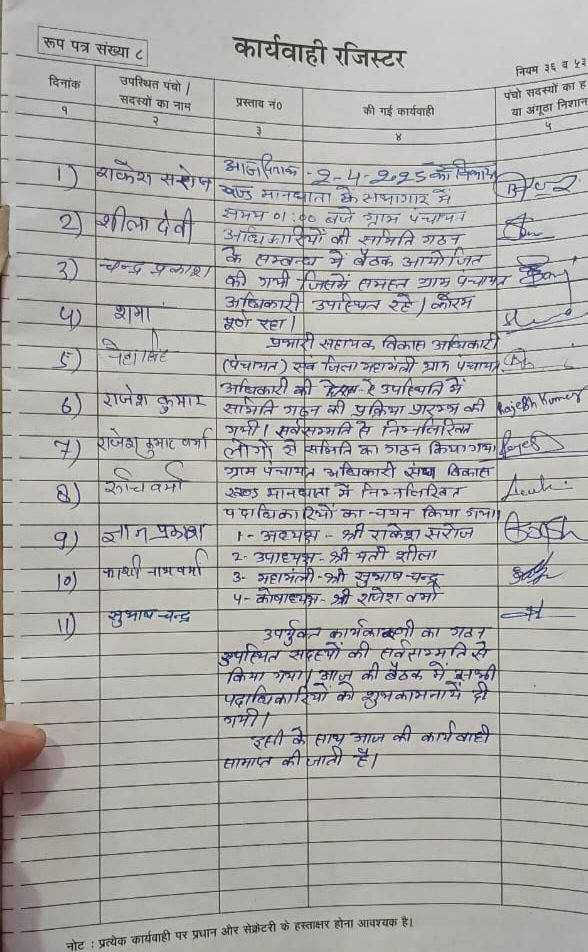 रूप पत्र संख्या ८
कार्यवाही रजिस्टर
नियम ३६ व ५३
दिनांक
उपस्थित पंचो / सदस्यों का नाम
प्रस्ताव नं०
की गई कार्यवाही
पंचो सदस्यों का ह
या अंगूठा निशान
१ २ ३ ४ ५
1) राकेश सरोज
2) शीला देवी
3) चन्द्र प्रकाश
4) शमा
5) नेहा सिंह
6) राजेश कुमार
7) राजेश कुमार वर्मा
8) रूचि वर्मा
9) ज्ञान प्रकाश
10) काशी नाथ वर्मा
11) सुभाष चन्द्र
आज दिनांक - 2-4-2025 को विकास
खण्ड मानधाता के सभागार में
समय 01:00 बजे ग्राम पंचायत
अधिकारियों की समिति गठन
के सम्बन्ध में बैठक आयोजित
की गयी जिसमें समस्त ग्राम पंचायत
अधिकारी उपस्थित रहे। कोरम
पूर्ण रहा।
प्रभारी सहायक विकास अधिकारी
(पंचायत) एवं जिला महामंत्री ग्राम पंचायत
अधिकारी की उपस्थिति में
समिति गठन की प्रक्रिया प्रारम्भ की
गयी। सर्वसम्मति से निम्नलिखित
लोगों से समिति का गठन किया गया।
ग्राम पंचायत अधिकारी संघ विकास
खण्ड मानधाता में निम्नलिखित
पदाधिकारियों का चयन किया गया।
1- अध्यक्ष - श्री राकेश सरोज
2- उपाध्यक्ष - श्री मती शीला
3- महामंत्री - श्री सुभाष चन्द्र
4- कोषाध्यक्ष - श्री राजेश वर्मा
उपर्युक्त कार्यकारणी का गठन
उपस्थित सदस्यों की सर्वसम्मति से
किया गया। आज की बैठक में सभी
पदाधिकारियों को शुभकामनायें दी
गयी।
इसी के साथ आज की कार्यवाही
समाप्त की जाती है।
Rajesh Kumar
नोट : प्रत्येक कार्यवाही पर प्रधान और सेक्रेटरी के हस्ताक्षर होना आवश्यक है।